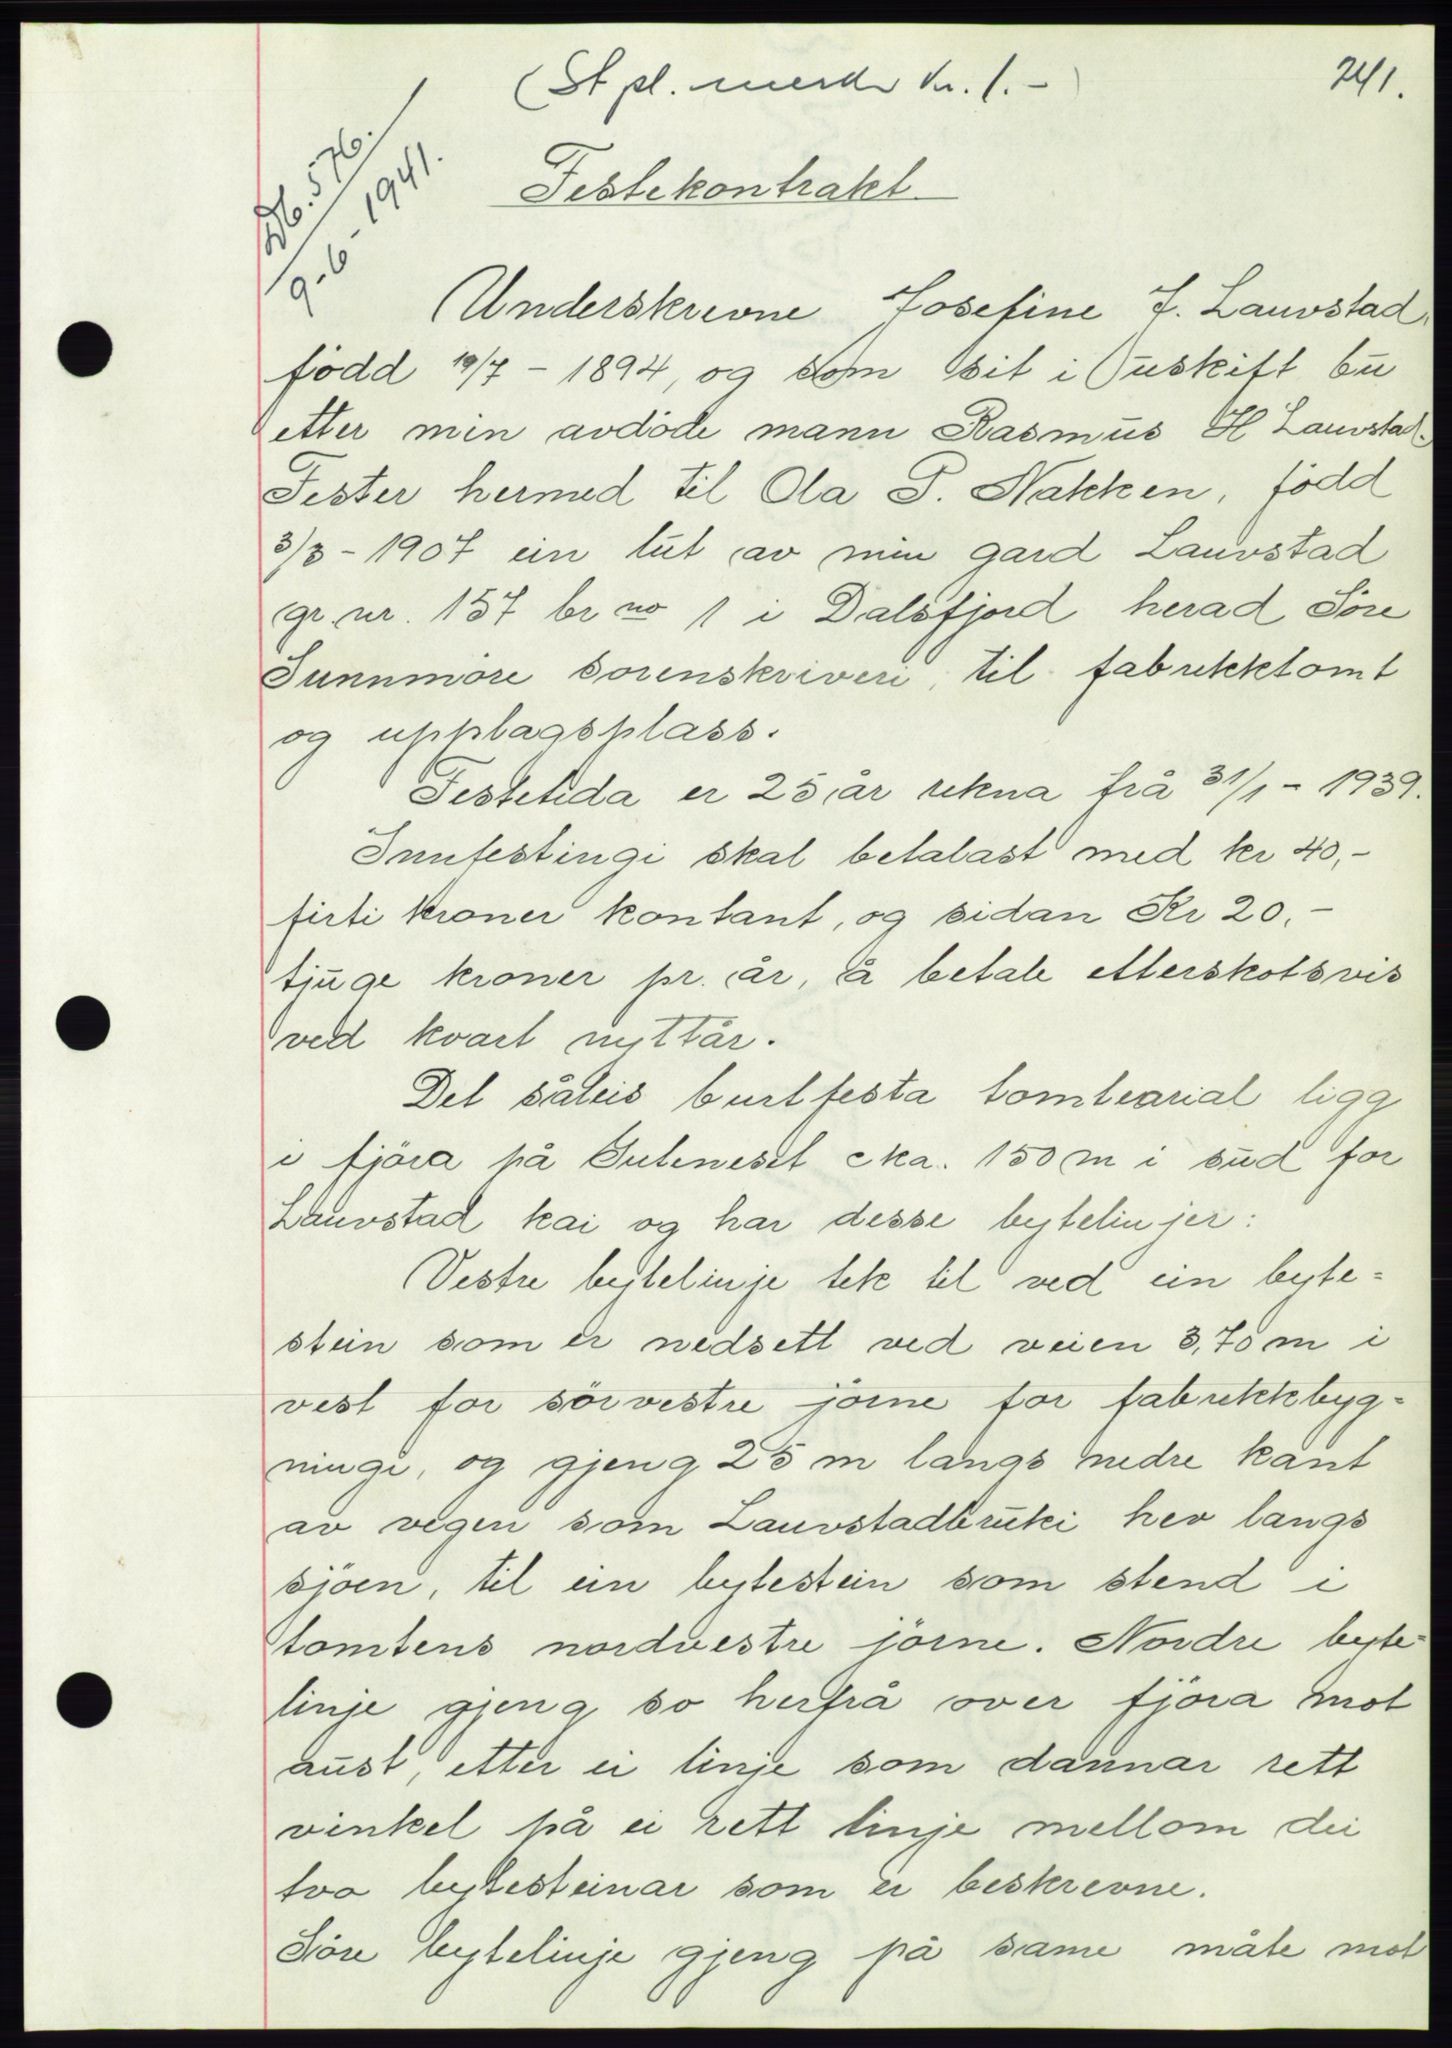 (St pl. merke kr. 1.-)
241.
Db. 576.
9-6-1941.
Festekontrakt.
Underskrevne Josefine J. Lauvstad,
född 19/7 - 1894, og som sit i uskift bu
etter min avdöde mann Rasmus H Lauvstad.
Fester hermed til Ola P. Nakken, född
3/3 - 1907 ein lut av min gard Lauvstad
gr. nr. 157 br no 1 i Dalsfjord herad Söre
Sunnmöre sorenskriveri, til fabrikktomt
og upplagsplass.
Festetida er 25 år rekna frå 31/1 - 1939.
Innfestingi skal betalast med kr 40,-
firti kroner kontant, og sidan Kr 20.-
tjuge kroner pr. år, å betale etterskotsvis
ved kvart nyttår.
Det såleis burtfesta tomtearial ligg
i fjöra på Suleneset cka. 150 m i sud for
Lauvstad kai og har desse bytelinjer:
Vestre bytelinje tek til ved ein byte=
stein som er nedsett ved veien 3,70 m i
vest for sörvestre jörne for fabrikkbyg=
ningi, og gjeng 25 m langs nedre kant
av vegen som Lauvstadbruki hev langs
sjöen, til ein bytestein som stend i
tomtens nordvestre jörne. Nordre byte=
linje gjeng so herfrå over fjöra mot
aust, etter ei linje som dannar rett
vinkel på ei rett linje mellom dei
tvo bytesteinar som er beskrevne.
Söre bytelinje gjeng på same måte mot